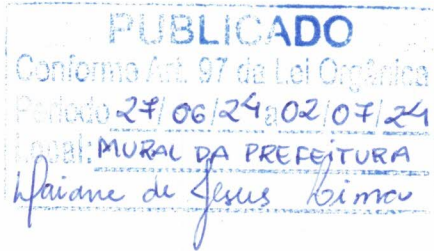 PUBLICADO
Conforme Art. 97 da Lei Orgânica
Período 27/06/24 a 02/07/24
Local: MURAL DA PREFEITURA
Daiane de Jesus Lima